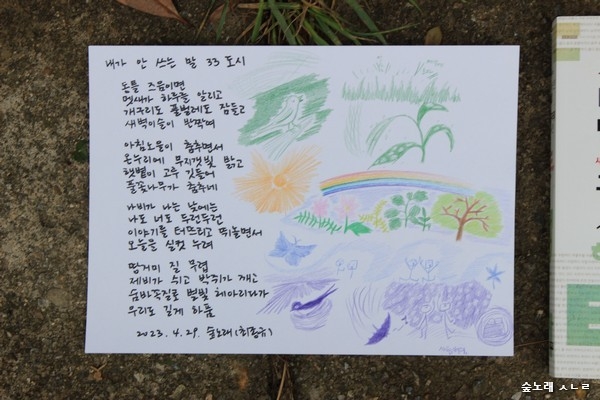 내가 안 쓰는 말 33 도시
동틀 즈음이면
멧새가 하루를 알리고
개구리도 풀벌레도 잠들고
새벽이슬이 반짝여
아침노을이 춤추면서
온누리에 무지갯빛 맑고
햇볕이 고루 깃들어
풀꽃나무가 춤추네
나비가 나는 낮에는
나도 너도 두런두런
이야기를 터뜨리고 뛰놀면서
오늘을 실컷 누려
땅거미 질 무렵
제비가 쉬고 박쥐가 깨고
숨바꼭질로 별빛 헤아리다가
우리도 길게 하품
2023. 4. 29. 숲노래 (최종규)
숲노래 ㅅㄴㄹ